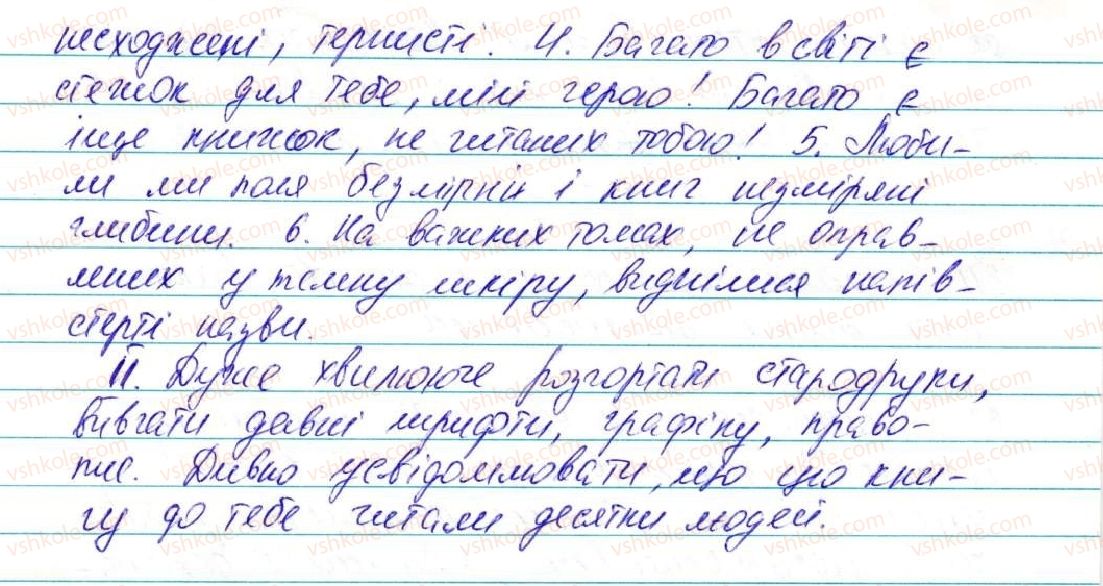 несходжені, тернисті. 4. Багато в світі є
стежок для тебе, мій герою! Багато є
іще книжок, не читаних тобою! 5. Люби-
ли ми поля безмірні і книг незміряні
глибини. 6. На важких томах, не оправ-
лених у темну шкіру, виднілися напів-
стерті назви.
II. Дуже хвилююче розгортати стародруки,
вивчати давні шрифти, графіку, право-
пис. Дивно усвідомлювати, що цю кни-
гу до тебе читали десятки людей.